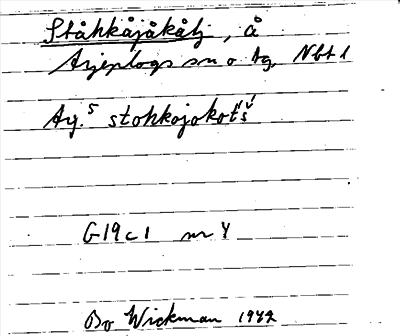 Ståhkåjåkålj, å
Arjeplogs sn o tg, Nbt l
Aj. s stohkojokot́š́
G19c1 nr 4
Bo Wickman 1942